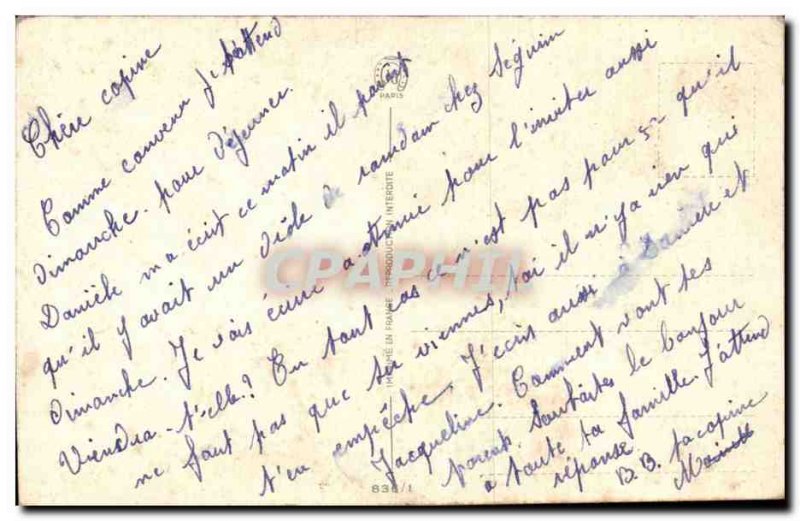 Chère copine
Comme convenu je t'attend
dimanche pour déjeuner.
Danièle m'a écrit ce matin il parait
qu'il y avait un drôle de ramdam chez Seguin
dimanche. Je vais écrire a pour l'inviter aussi
Viendra-t-elle? En tout cas ce n'est pas pour ça qu'il
ne faut pas que tu viennes, toi il n'y a rien qui
t'en empêche. J'écris aussi à Danièle et
Jacqueline. Comment vont tes
parents. Souhaites le bonjour
à toute ta famille. J'attend
réponse
B.B. ta copine
PARIS
IMPRIMÉ EN FRANCE REPRODUCTION INTERDITE
CPAPHIL
836/1